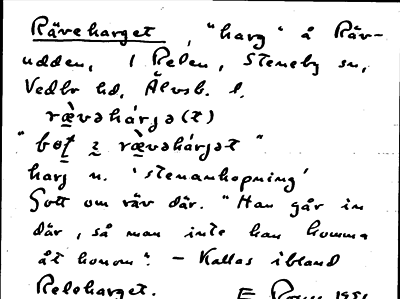 Räveharget, "harg" å Räv-
udden, i Relen, Steneby sn,
Vedbo hd, Älvsb. l.
rævəhárjə(t)
" bət i rævəhárjət "
harj n. 'stenanhopning'
Gott om räv där. "Han går in
där, så man inte kan komma
åt honom". – Kallas ibland
Releharget. E 1951